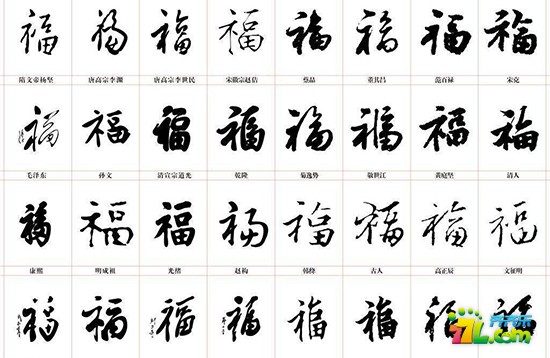 福 福 福 福 福 福 福 福
隋文帝杨坚 唐高宗李渊 唐高宗李世民 宋徽宗赵佶 蔡晶 董其昌 范百禄 宋克
福 福 福 福 福 福 福 福
毛泽东 孙文 清宣宗道光 乾隆 菊逸势 敬世江 黄庭坚 清人
福 福 福 福 福 福 福 福
康熙 明成祖 光绪 赵构 韩绛 古人 高正辰 文征明
福 福 福 福 福 福 福 福
7L.com